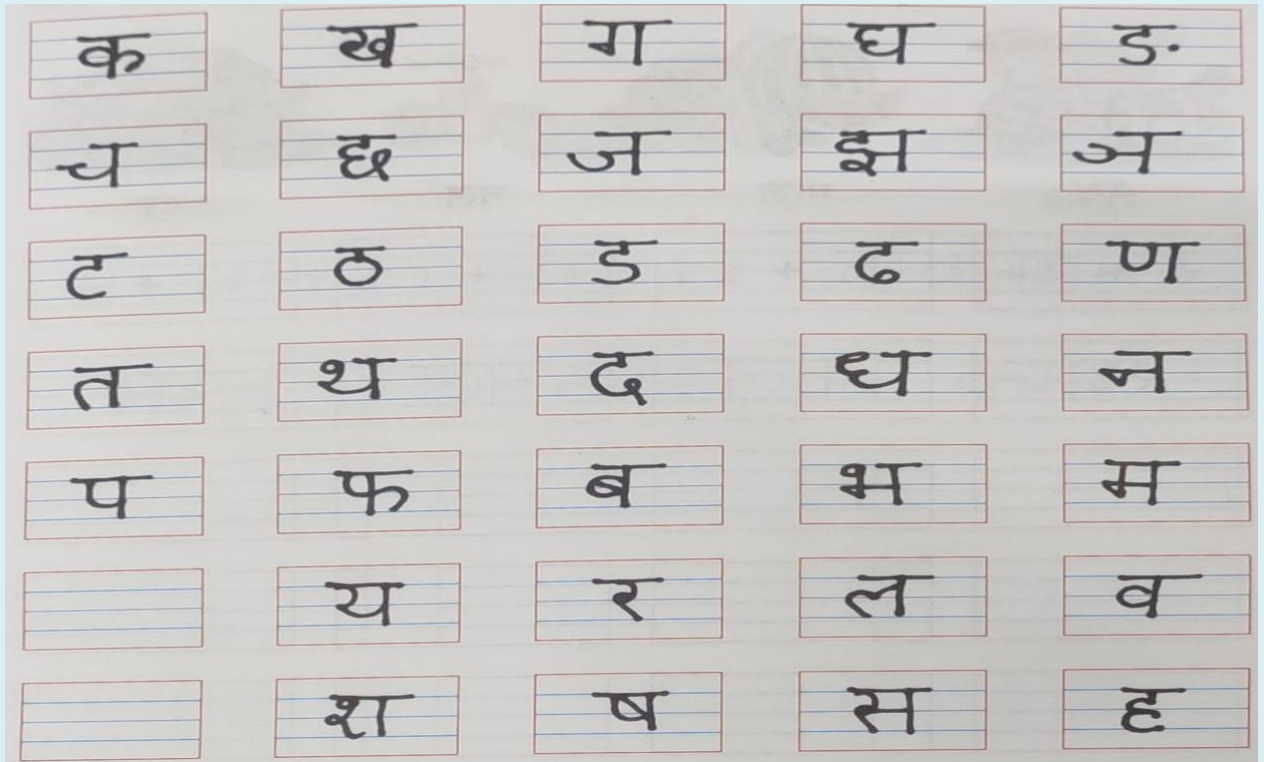 क ख ग घ ङ
च छ ज झ ञ
ट ठ ड ढ ण
त थ द ध न
प फ ब भ म
य र ल व
श ष स ह